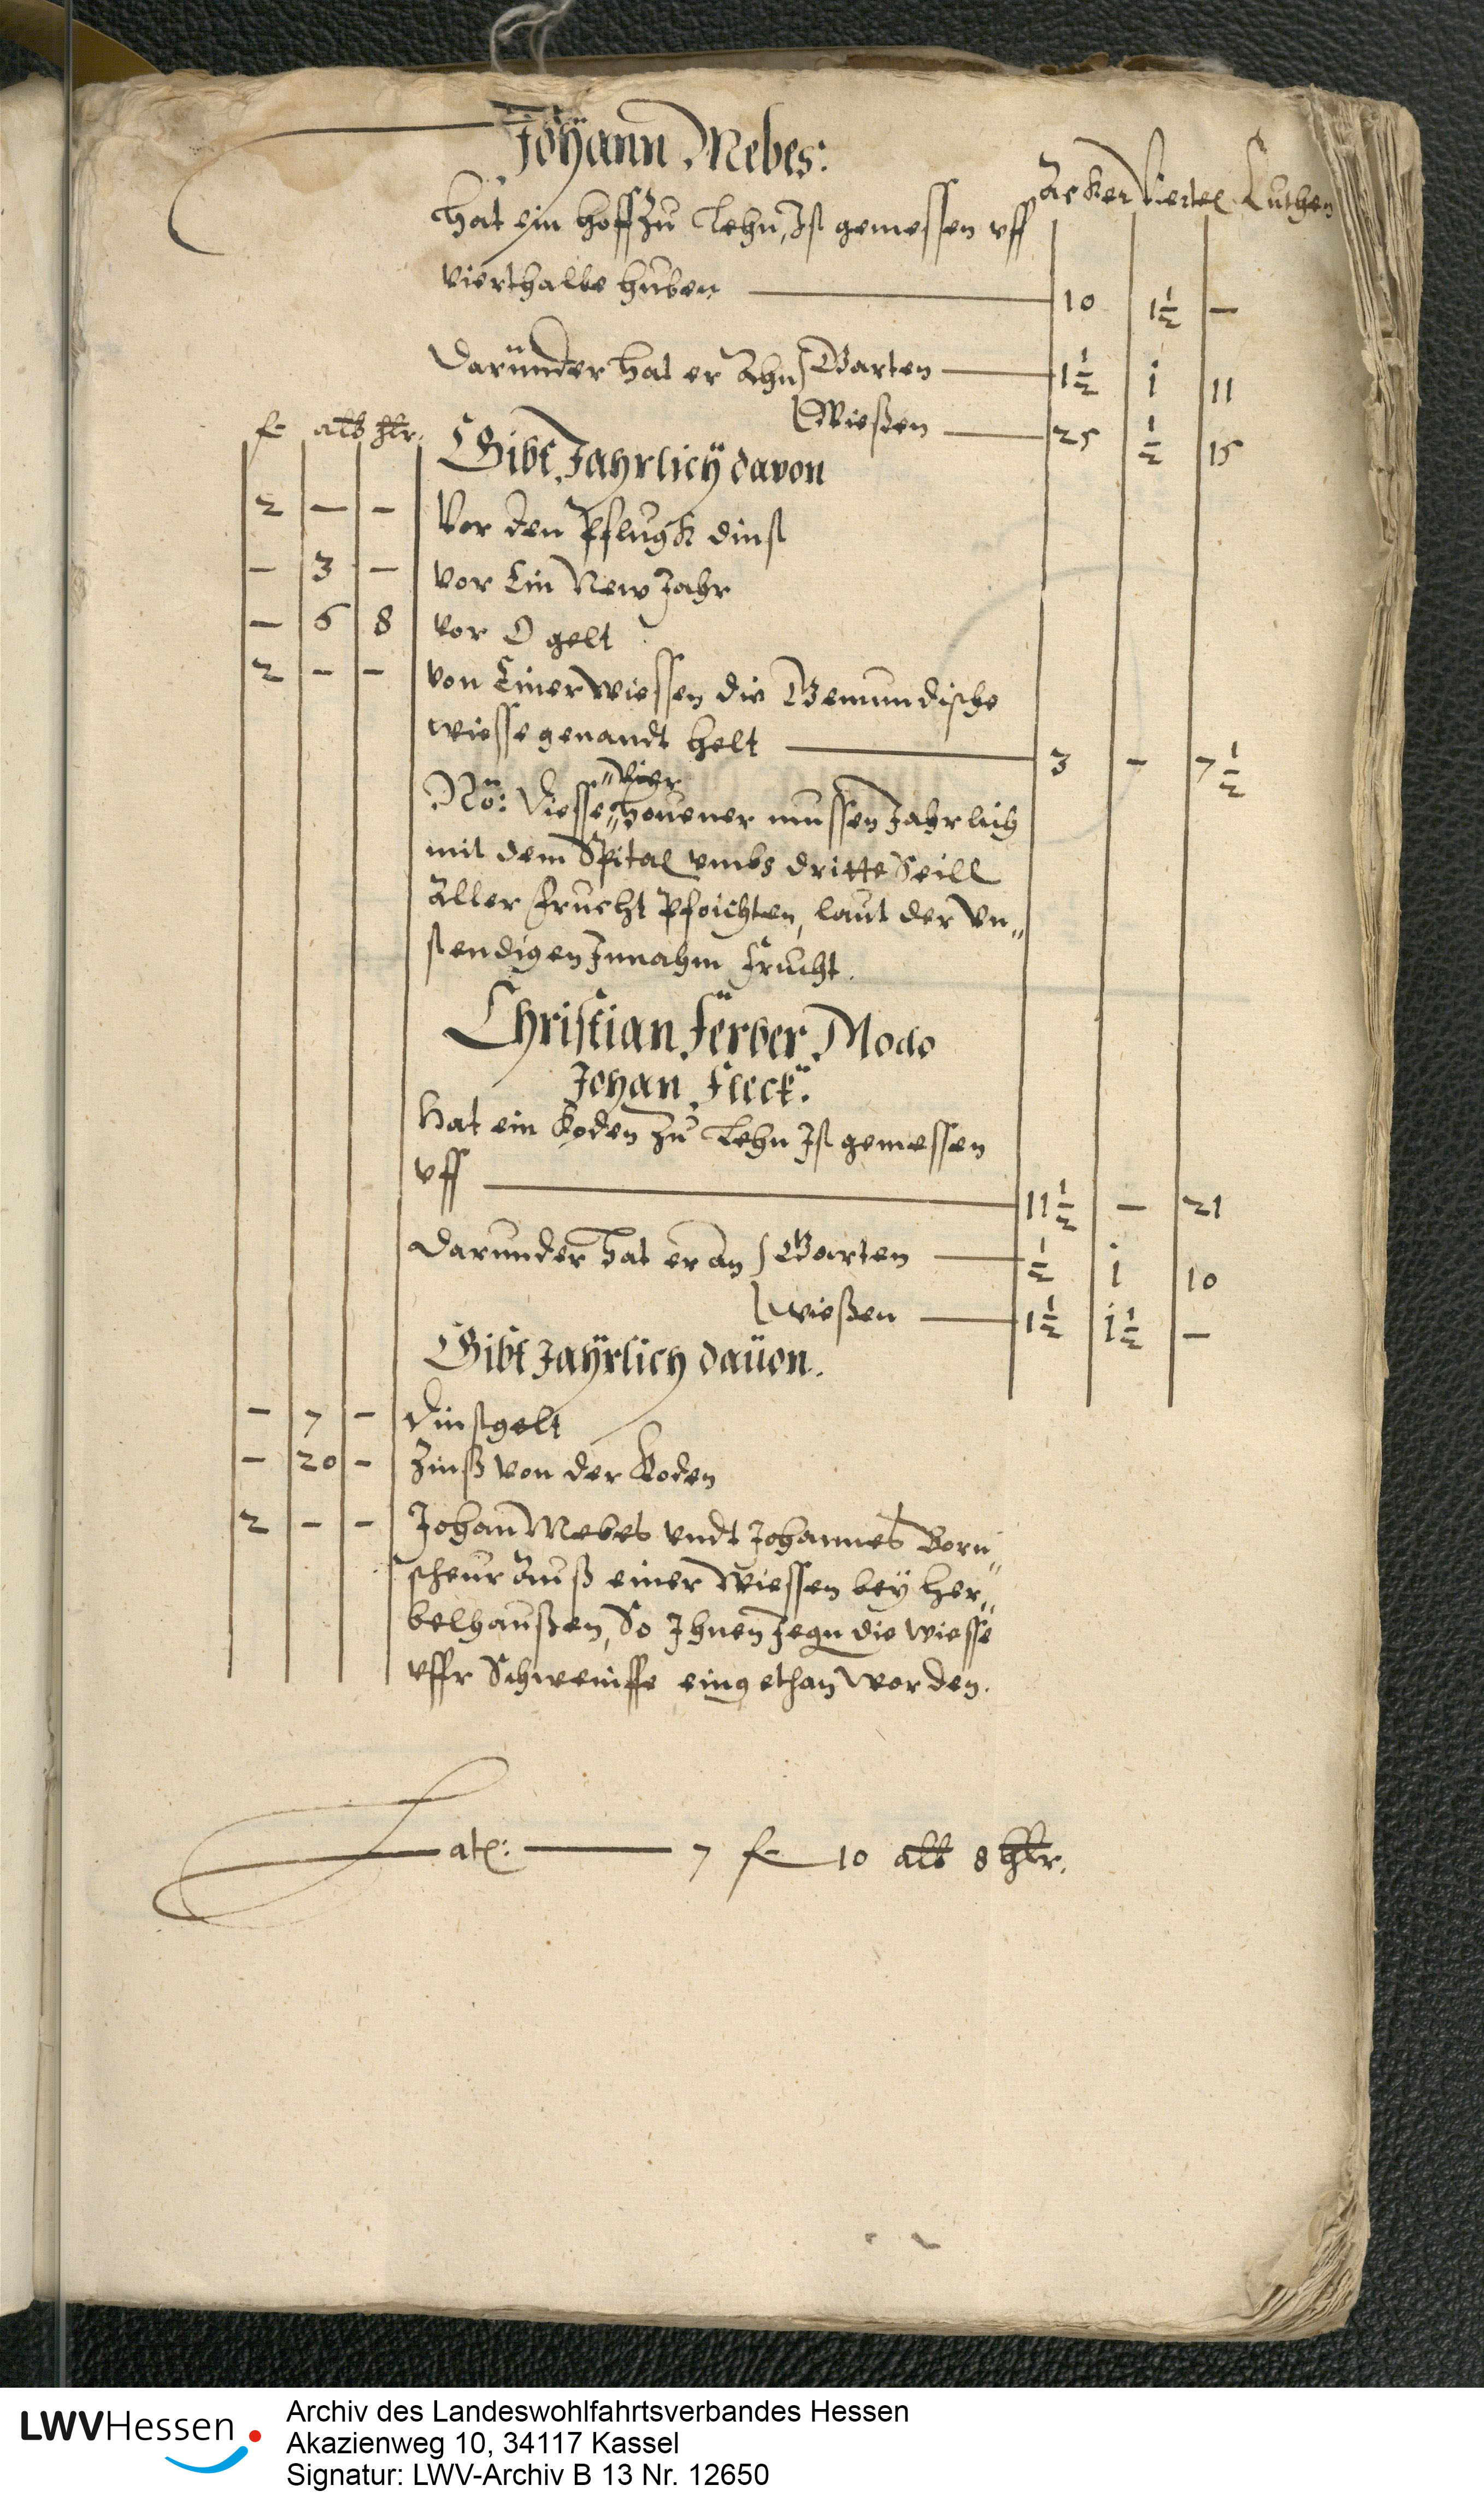 Johann Mebes:
Acker Viertel Ruthen
hat ein hoff zu Lehn, Ist gemessen vff
vierthalbe huben — 10 1½ —
Darunder hat er Ahn Garten — 1½ 1 11
Wießen — 25 ½ 15
f alb hlr.
Gibt Jahrlich davon
2 — — Vor den Pflugk dinst
— 3 — vor Ein New Jahr
— 6 8 vor O gelt
2 — — von Einer wiessen die Gemundische
wiesse genandt helt — 3 — 7½
Nō: Diesse vier houener mussen Jahrlich
mit dem Spital vmbs dritte Teill
Aller frucht pfoichten, laut der Vn„
stendigen Innahm frucht.
Christian Ferber Modo
Johan Fleck:
Hat ein Koden zu Lehn Ist gemessen
vff — 11½ — 21
Darunder hat er an Garten — ½ 1 10
wießen — 1½ 1½ —
Gibt Jahrlich dauon.
— 7 — Dinstgelt
— 20 — Zinß von der Koden
2 — — Johan Mebes vndt Johannes Born„
scheur Auß einer Wiessen bey Her„
belhaußen, So Ihnen gegen die wiesse
vffr Schweinffe eingethan worden.
Lat: — 7 f 10 alb 8 hlr.
LWVHessen
Archiv des Landeswohlfahrtsverbandes Hessen
Akazienweg 10, 34117 Kassel
Signatur: LWV-Archiv B 13 Nr. 12650